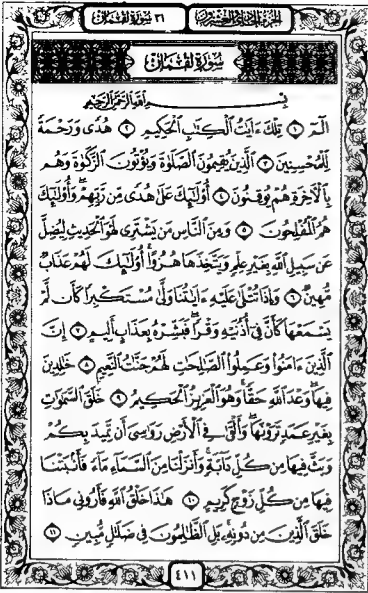 الجزء الحادي والعشرون
٣١ سورة لقمان
سورة لقمان
بسم الله الرحمن الرحيم
الٓمٓ ١ تِلْكَ ءَايَٰتُ ٱلْكِتَٰبِ ٱلْحَكِيمِ ٢ هُدًى وَرَحْمَةً
لِّلْمُحْسِنِينَ ٣ ٱلَّذِينَ يُقِيمُونَ ٱلصَّلَوٰةَ وَيُؤْتُونَ ٱلزَّكَوٰةَ وَهُم
بِٱلْءَاخِرَةِ هُمْ يُوقِنُونَ ٤ أُو۟لَٰٓئِكَ عَلَىٰ هُدًى مِّن رَّبِّهِمْ ۖ وَأُو۟لَٰٓئِكَ
هُمُ ٱلْمُفْلِحُونَ ٥ وَمِنَ ٱلنَّاسِ مَن يَشْتَرِى لَهْوَ ٱلْحَدِيثِ لِيُضِلَّ
عَن سَبِيلِ ٱللَّهِ بِغَيْرِ عِلْمٍ وَيَتَّخِذَهَا هُزُوًا ۚ أُو۟لَٰٓئِكَ لَهُمْ عَذَابٌ
مُّهِينٌ ٦ وَإِذَا تُتْلَىٰ عَلَيْهِ ءَايَٰتُنَا وَلَّىٰ مُسْتَكْبِرًا كَأَن لَّمْ
يَسْمَعْهَا كَأَنَّ فِىٓ أُذُنَيْهِ وَقْرًا ۖ فَبَشِّرْهُ بِعَذَابٍ أَلِيمٍ ٧ إِنَّ
ٱلَّذِينَ ءَامَنُوا۟ وَعَمِلُوا۟ ٱلصَّٰلِحَٰتِ لَهُمْ جَنَّٰتُ ٱلنَّعِيمِ ٨ خَٰلِدِينَ
فِيهَا ۖ وَعْدَ ٱللَّهِ حَقًّا ۚ وَهُوَ ٱلْعَزِيزُ ٱلْحَكِيمُ ٩ خَلَقَ ٱلسَّمَٰوَٰتِ
بِغَيْرِ عَمَدٍ تَرَوْنَهَا ۖ وَأَلْقَىٰ فِى ٱلْأَرْضِ رَوَٰسِىَ أَن تَمِيدَ بِكُمْ
وَبَثَّ فِيهَا مِن كُلِّ دَآبَّةٍ ۚ وَأَنزَلْنَا مِنَ ٱلسَّمَآءِ مَآءً فَأَنۢبَتْنَا
فِيهَا مِن كُلِّ زَوْجٍ كَرِيمٍ ١٠ هَٰذَا خَلْقُ ٱللَّهِ فَأَرُونِى مَاذَا
خَلَقَ ٱلَّذِينَ مِن دُونِهِۦ ۚ بَلِ ٱلظَّٰلِمُونَ فِى ضَلَٰلٍ مُّبِينٍ ١١
٤١١